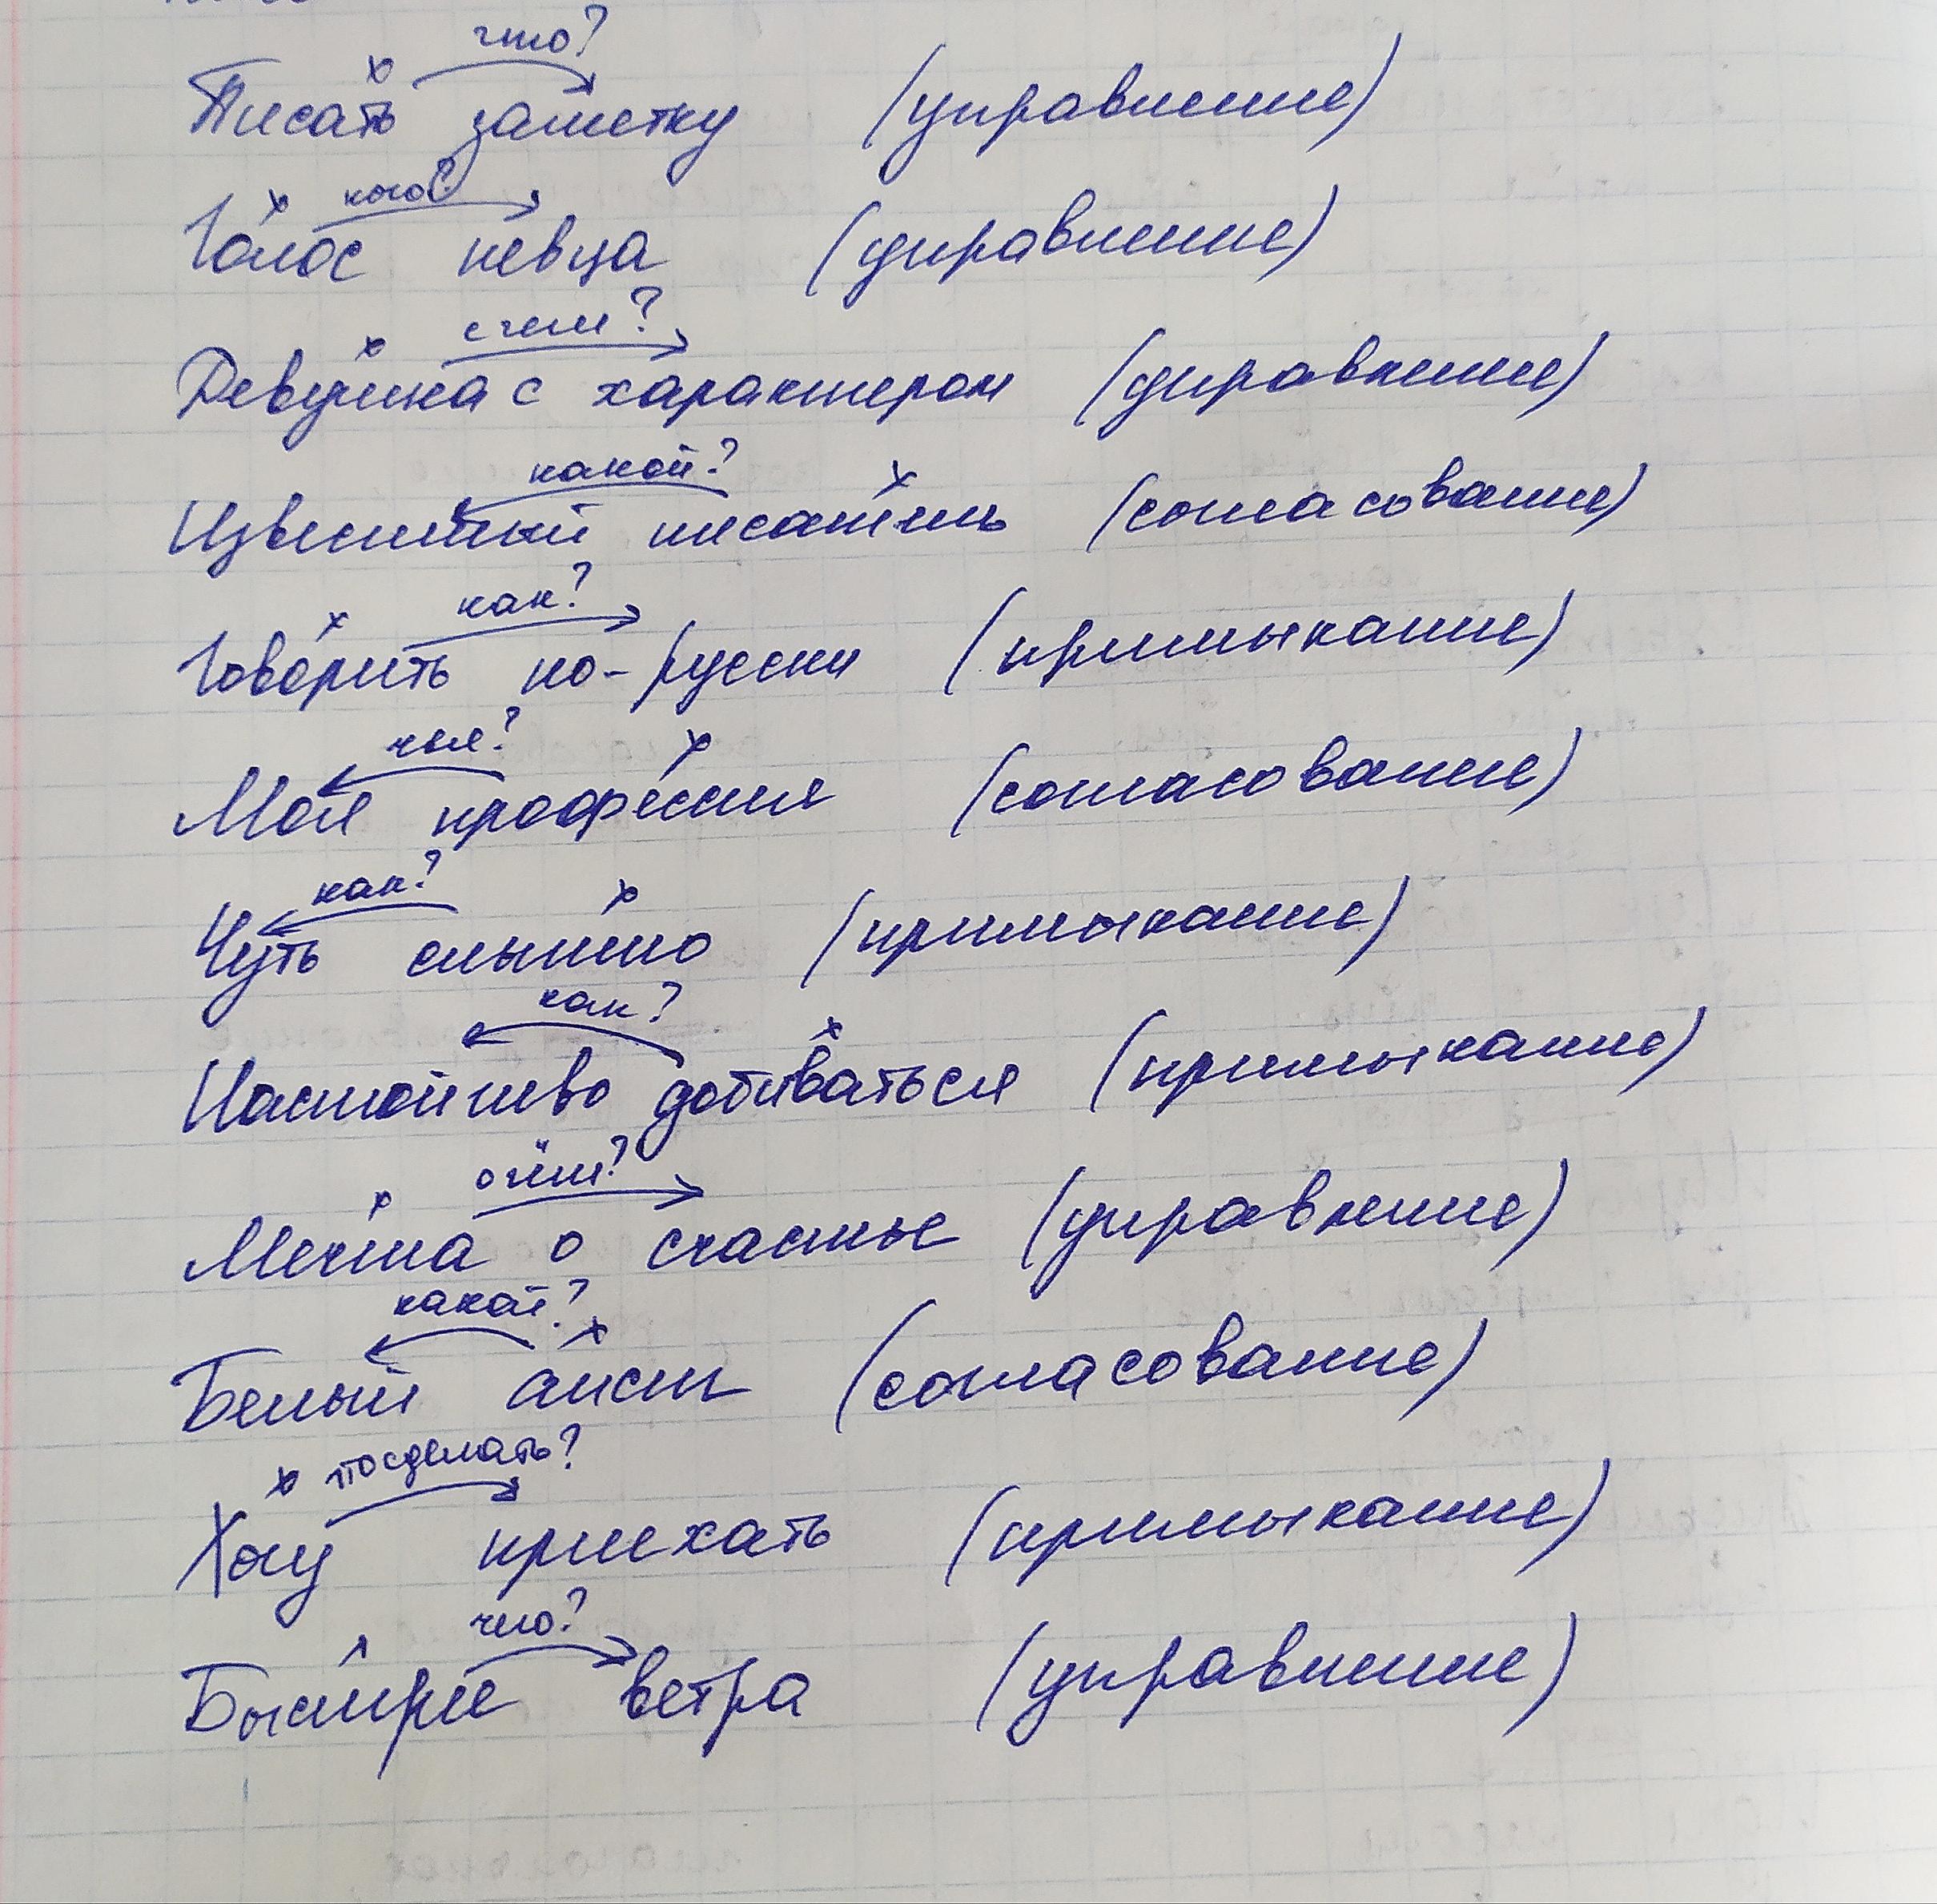 что?
Писать заметку (управление)
кого?
Голос певца (управление)
с чем?
Девушка с характером (управление)
какой?
Известный писатель (согласование)
как?
Говорить по-русски (примыкание)
чья?
Моя профессия (согласование)
как?
Чуть слышно (примыкание)
как?
Настойчиво добиваться (примыкание)
о чём?
Мечта о счастье (управление)
какой?
Белый аист (согласование)
что сделать?
Хочу приехать (примыкание)
чего?
Быстрее ветра (управление)